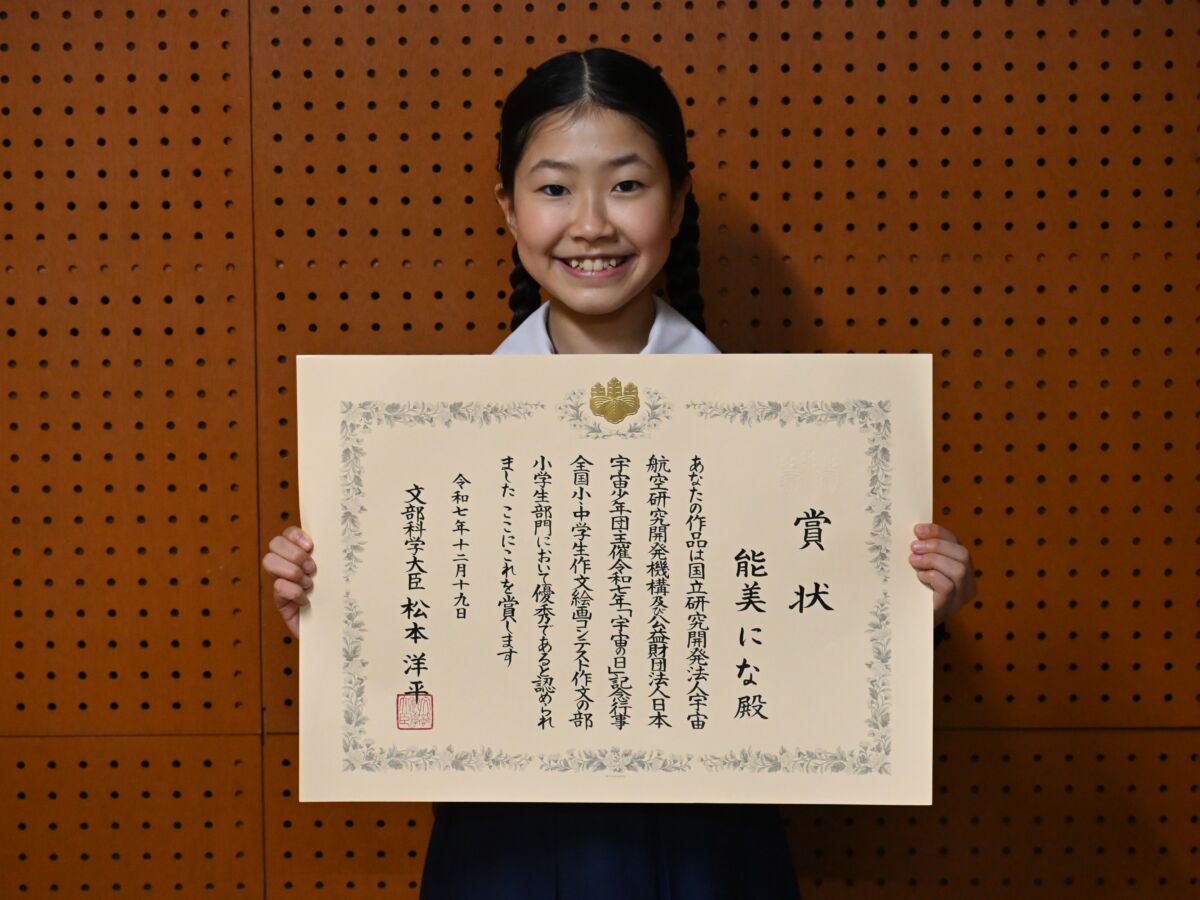 賞状
能美にな殿
あなたの作品は国立研究開発法人宇宙
航空研究開発機構及び公益財団法人日本
宇宙少年団主催令和七年「宇宙の日」記念行事
全国小・中学生作文絵画コンテスト作文の部
小学生部門において優秀であると認められ
ました ここにこれを賞します
令和七年十二月十九日
文部科学大臣 松本洋平